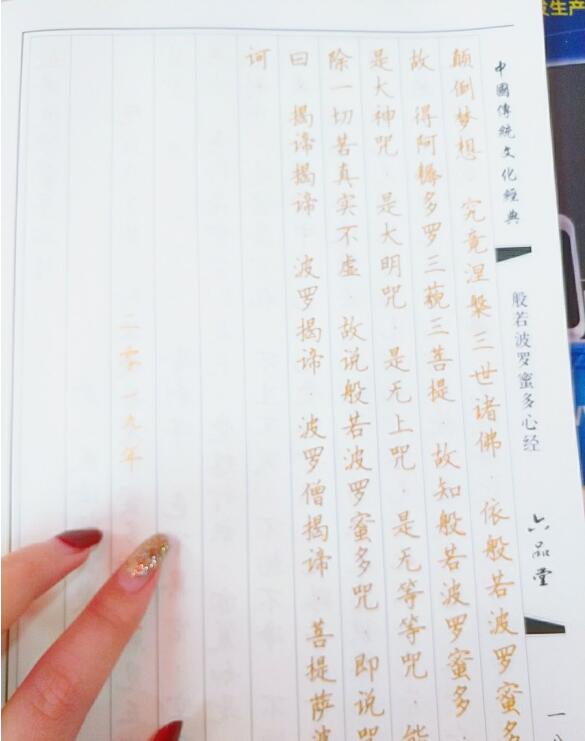 生产
中國傳統文化經典
般若波罗蜜多心经
六品堂
颠倒梦想·究竟涅槃三世诸佛·依般若波罗蜜多
故·得阿耨多罗三藐三菩提·故知般若波罗蜜多
是大神咒·是大明咒·是无上咒·是无等等咒·能
除一切苦真实不虚·故说般若波罗蜜多咒·即说咒
曰·揭谛揭谛·波罗揭谛·波罗僧揭谛·菩提萨婆
诃
二零一九年